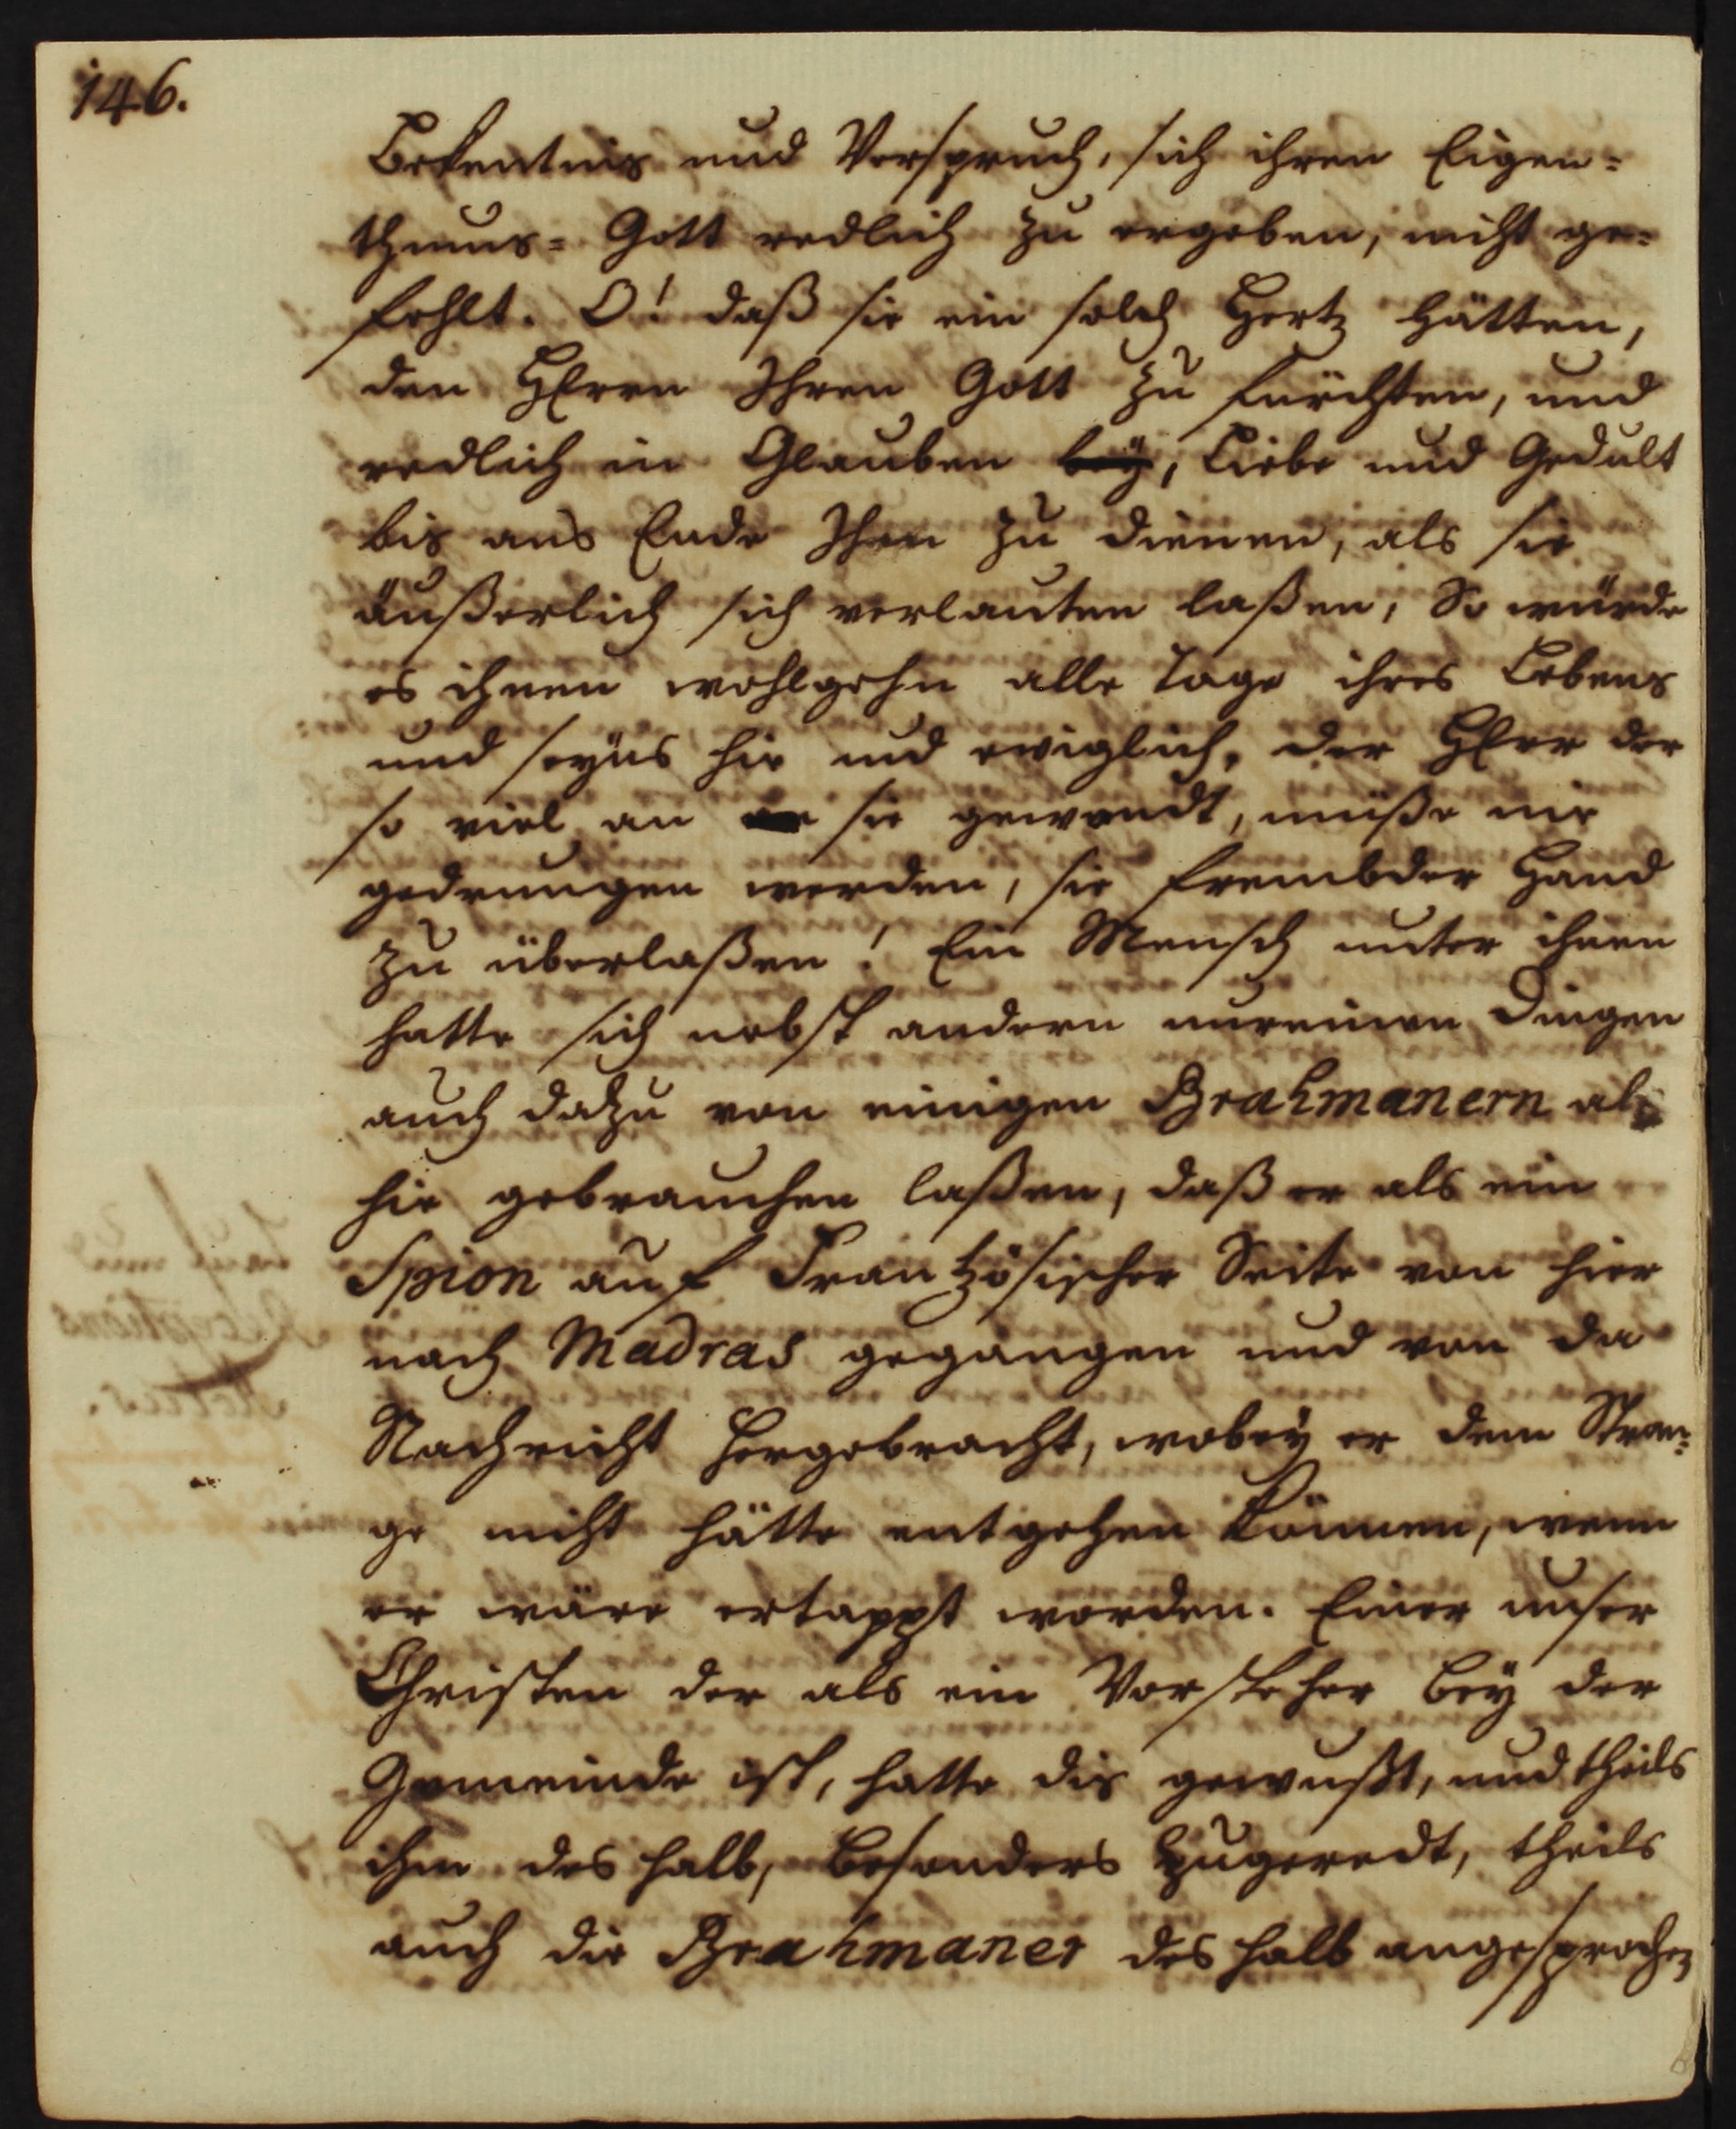 146.
Bekentnis und Verspruch, sich ihren Eigen=
thums= Gott redlich zu ergeben, nicht ge=
fehlt. O! daß sie ein solch Hertz hätten,
den HErrn Ihren Gott zu fürchten, und
redlich in Glauben bey, Liebe und Gedult
bis ans Ende Ihm zu dienen, als sie
äußerlich sich verlauten laßen; So würde
es ihnen wohlgehn alle Tage ihres Lebens
und seyns hie und ewiglich. der HErr der
so viel an sie gewandt, müße nie
gedrungen werden, sie frembder Hand
zu überlaßen! Ein Mensch unter ihnen
hatte sich nebst andern unreinen Dingen
auch dazu von einigen Brahmanern al=
hie gebrauchen laßen, daß er als ein
Spion auf Frantzösischer Seite von hier
nach Madras gegangen und von da
Nachricht hergebracht, wobey er dem Stran=
ge nicht hätte entgehen können, wenn
er wäre ertappt worden. Einer unser
Christen der als ein Vorsteher bey der
Gemeinde ist, hatte dis gewußt, und theils
ihm des halb, besonders zugeredt, theils
auch die Brahmaner des halb angesprochen